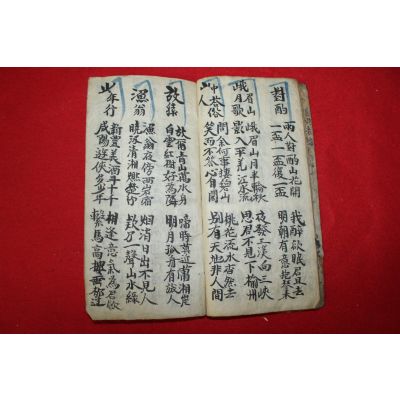 對酌
兩人對酌山花開 我醉欲眠君且去
一盃一盃復一盃 明朝有意抱琴来
峨眉山月歌
峨眉山月半輪秋 夜發三溪向三峽
影入平羌江水流 思君不見下楡州
山中答俗人
問余何事捿碧山 桃花流水杳然去
笑而不答心自閑 別有天地非人間
放猿
青山萬水身 啼時莫近瀟湘岸
白雲紅樹好為隣 明月孤舟有旅人
漁翁
漁翁夜傍西岩宿 烟消日出不見人
曉汲清湘燃楚竹 欸乃一聲山水綠
少年行
新豊美酒斗十千 相逢意氣為君飲
咸陽遊俠多少年 繫馬高樓垂柳邊